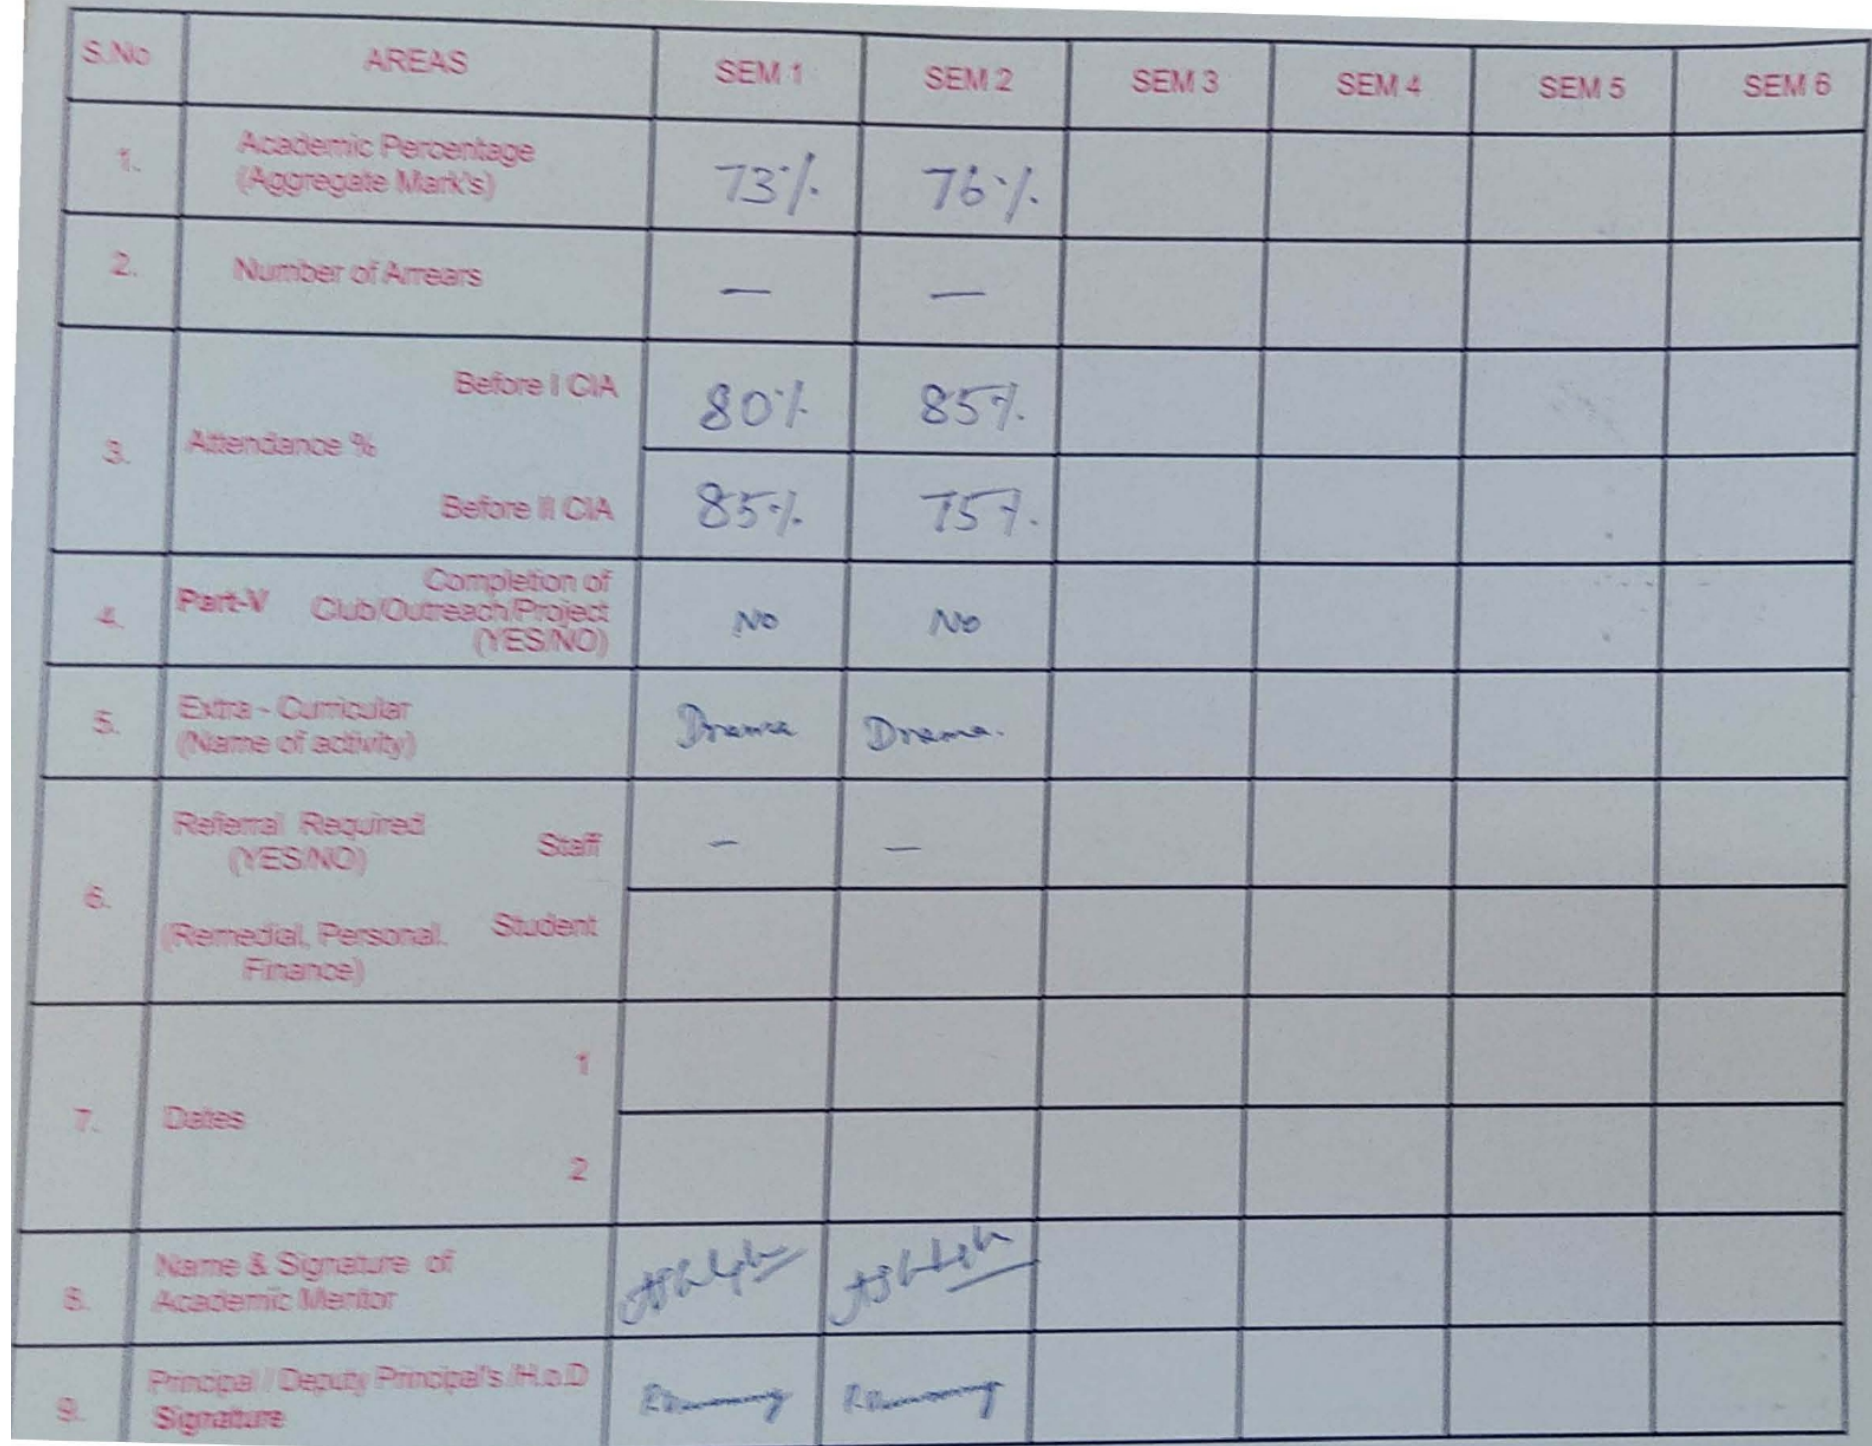 S.No AREAS SEM 1 SEM 2 SEM 3 SEM 4 SEM 5 SEM 6
1. Academic Percentage
(Aggregate Mark's) 73% 76%
2. Number of Arrears — —
Before I CIA 80% 85%
3. Attendance %
Before II CIA 85% 75%
4. Part-V Completion of
Club/Outreach/Project
(YES/NO) No No
5. Extra - Curricular
(Name of activity) Drama Drama.
6. Referral Required
(YES/NO) Staff — —
(Remedial, Personal. Student
Finance)
1
7. Dates
2
8. Name & Signature of
Academic Mentor
9. Principal / Deputy Principal's /H.o.D
Signature